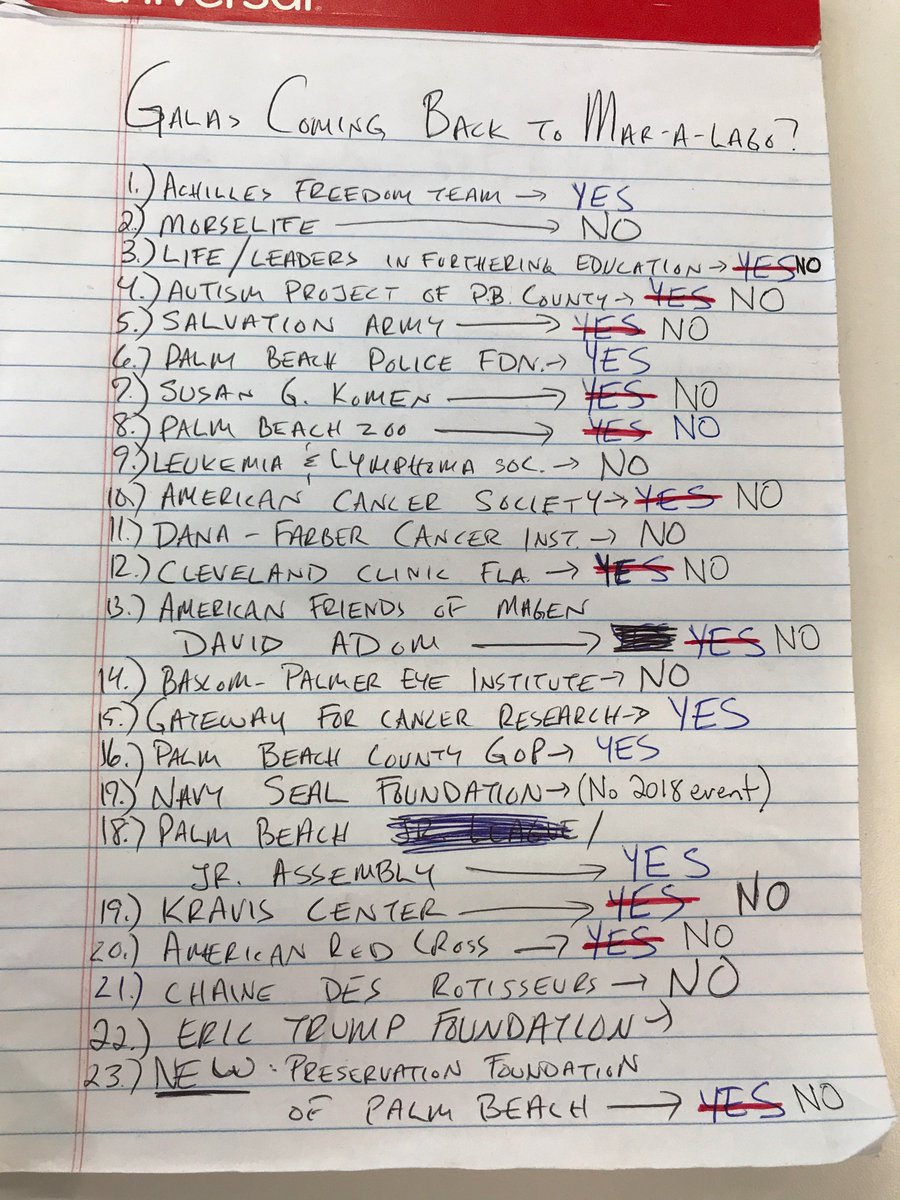 universal
GALAS COMING BACK TO MAR-A-LAGO?
1.) ACHILLES FREEDOM TEAM → YES
2.) MORSELIFE → NO
3.) LIFE/LEADERS IN FURTHERING EDUCATION → YES NO
4.) AUTISM PROJECT OF P.B. COUNTY → YES NO
5.) SALVATION ARMY → YES NO
6.) PALM BEACH POLICE FDN. → YES
7.) SUSAN G. KOMEN → YES NO
8.) PALM BEACH ZOO → YES NO
9.) LEUKEMIA & LYMPHOMA SOC. → NO
10.) AMERICAN CANCER SOCIETY → YES NO
11.) DANA-FARBER CANCER INST. → NO
12.) CLEVELAND CLINIC FLA. → YES NO
13.) AMERICAN FRIENDS OF MAGEN
DAVID ADOM → YES NO
14.) BASCOM-PALMER EYE INSTITUTE → NO
15.) GATEWAY FOR CANCER RESEARCH → YES
16.) PALM BEACH COUNTY GOP → YES
17.) NAVY SEAL FOUNDATION → (No 2018 event)
18.) PALM BEACH JR. LEAGUE /
JR. ASSEMBLY → YES
19.) KRAVIS CENTER → YES NO
20.) AMERICAN RED CROSS → YES NO
21.) CHAINE DES ROTISSEURS → NO
22.) ERIC TRUMP FOUNDATION →
23.) NEW: PRESERVATION FOUNDATION
OF PALM BEACH → YES NO